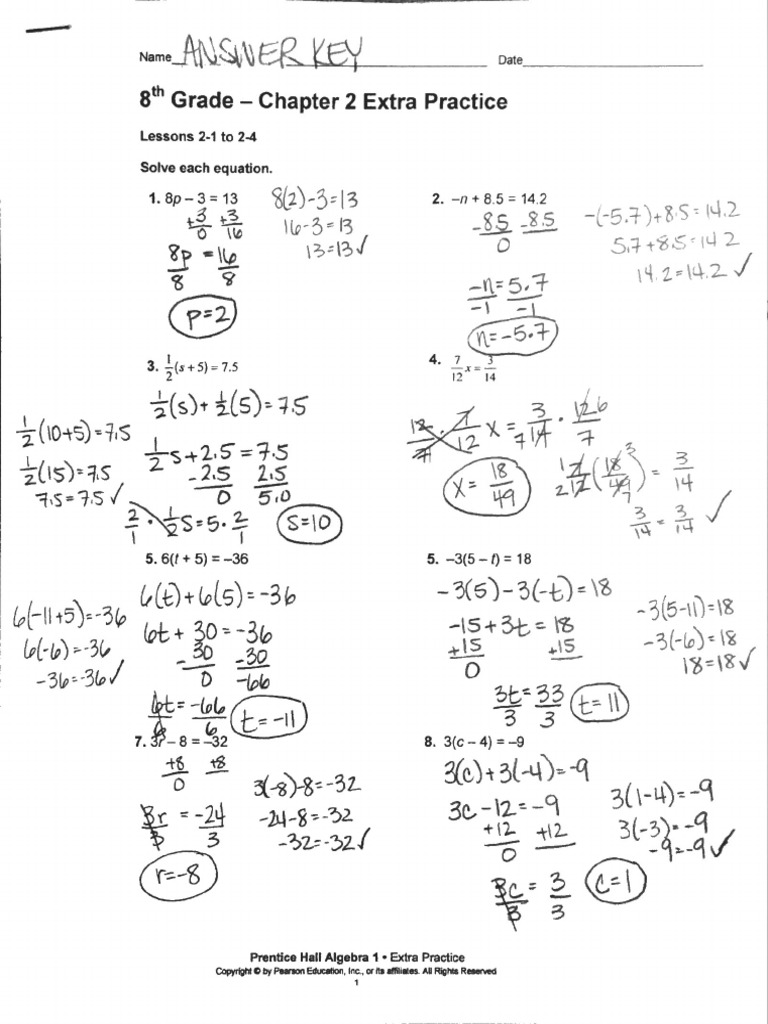 Name ANSWER KEY Date
8th Grade – Chapter 2 Extra Practice
Lessons 2-1 to 2-4
Solve each equation.
1. 8p – 3 = 13
+3 +3
0 16
8p = 16
8 8
p=2
8(2)-3=13
16-3=13
13=13✓
2. –n + 8.5 = 14.2
-8.5 -8.5
0
-n=5.7
-1 -1
n=-5.7
-(-5.7)+8.5=14.2
5.7+8.5=14.2
14.2=14.2 ✓
3. 1/2(s + 5) = 7.5
1/2(s)+1/2(5)=7.5
1/2s+2.5=7.5
-2.5 2.5
0 5.0
2/1 · 1/2s=5·2/1
s=10
1/2(10+5)=7.5
1/2(15)=7.5
7.5=7.5✓
4. 7/12 x = 3/14
12/7 · 7/12 x = 3/14 · 12/7
7 6
x = 18/49
7/12(18/49) = 3/14
1 2 3 7
3/14 = 3/14 ✓
5. 6(t + 5) = –36
6(t)+6(5)=-36
6t+30=-36
-30 -30
0 -66
6t=-66
6 6
t=-11
6(-11+5)=-36
6(-6)=-36
-36=-36✓
5. –3(5 – t) = 18
-3(5)-3(-t)=18
-15+3t=18
+15 +15
0
3t=33
3 3
t=11
-3(5-11)=18
-3(-6)=18
18=18✓
7. 3r – 8 = –32
+8 +8
0
3r = -24
3 3
r=-8
3(-8)-8=-32
-24-8=-32
-32=-32✓
8. 3(c – 4) = –9
3(c)+3(-4)=-9
3c-12=-9
+12 +12
0
3c = 3
3 3
c=1
3(1-4)=-9
3(-3)=-9
-9=-9✓
Prentice Hall Algebra 1 • Extra Practice
Copyright © by Pearson Education, Inc., or its affiliates. All Rights Reserved
1